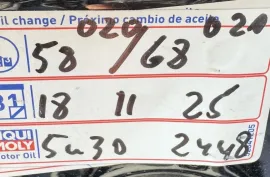 il change / Próximo cambio de aceite
020 021
58 / 68
31 18 11 25
LIQUI MOLY
Motor Oil
5w30 2448